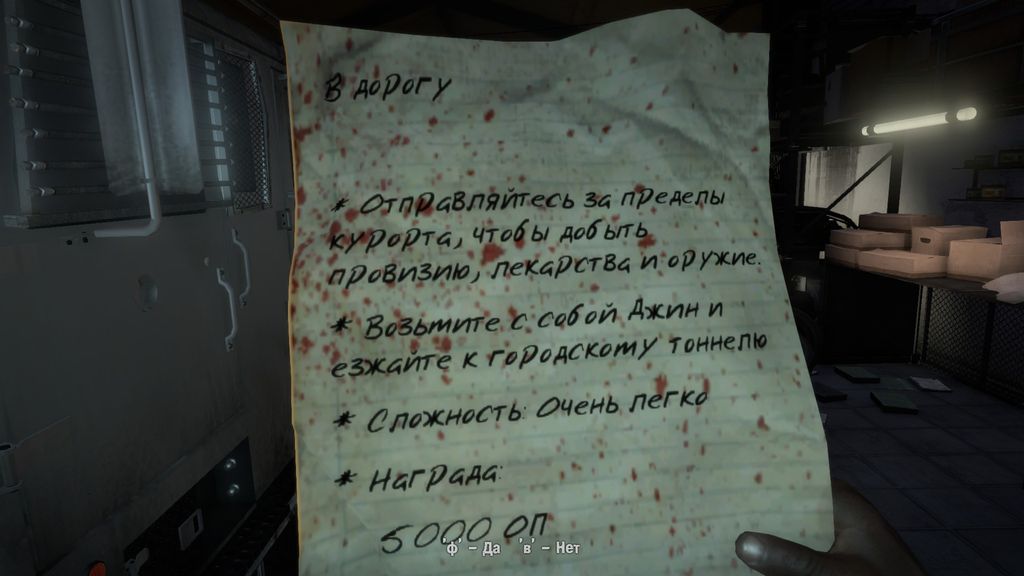 В дорогу
* Отправляйтесь за пределы
курорта, чтобы добыть
провизию, лекарства и оружие.
* Возьмите с собой Джин и
езжайте к городскому тоннелю
* Сложность: Очень легко
* Награда:
5000 ОП
'ф' – Да 'в' – Нет